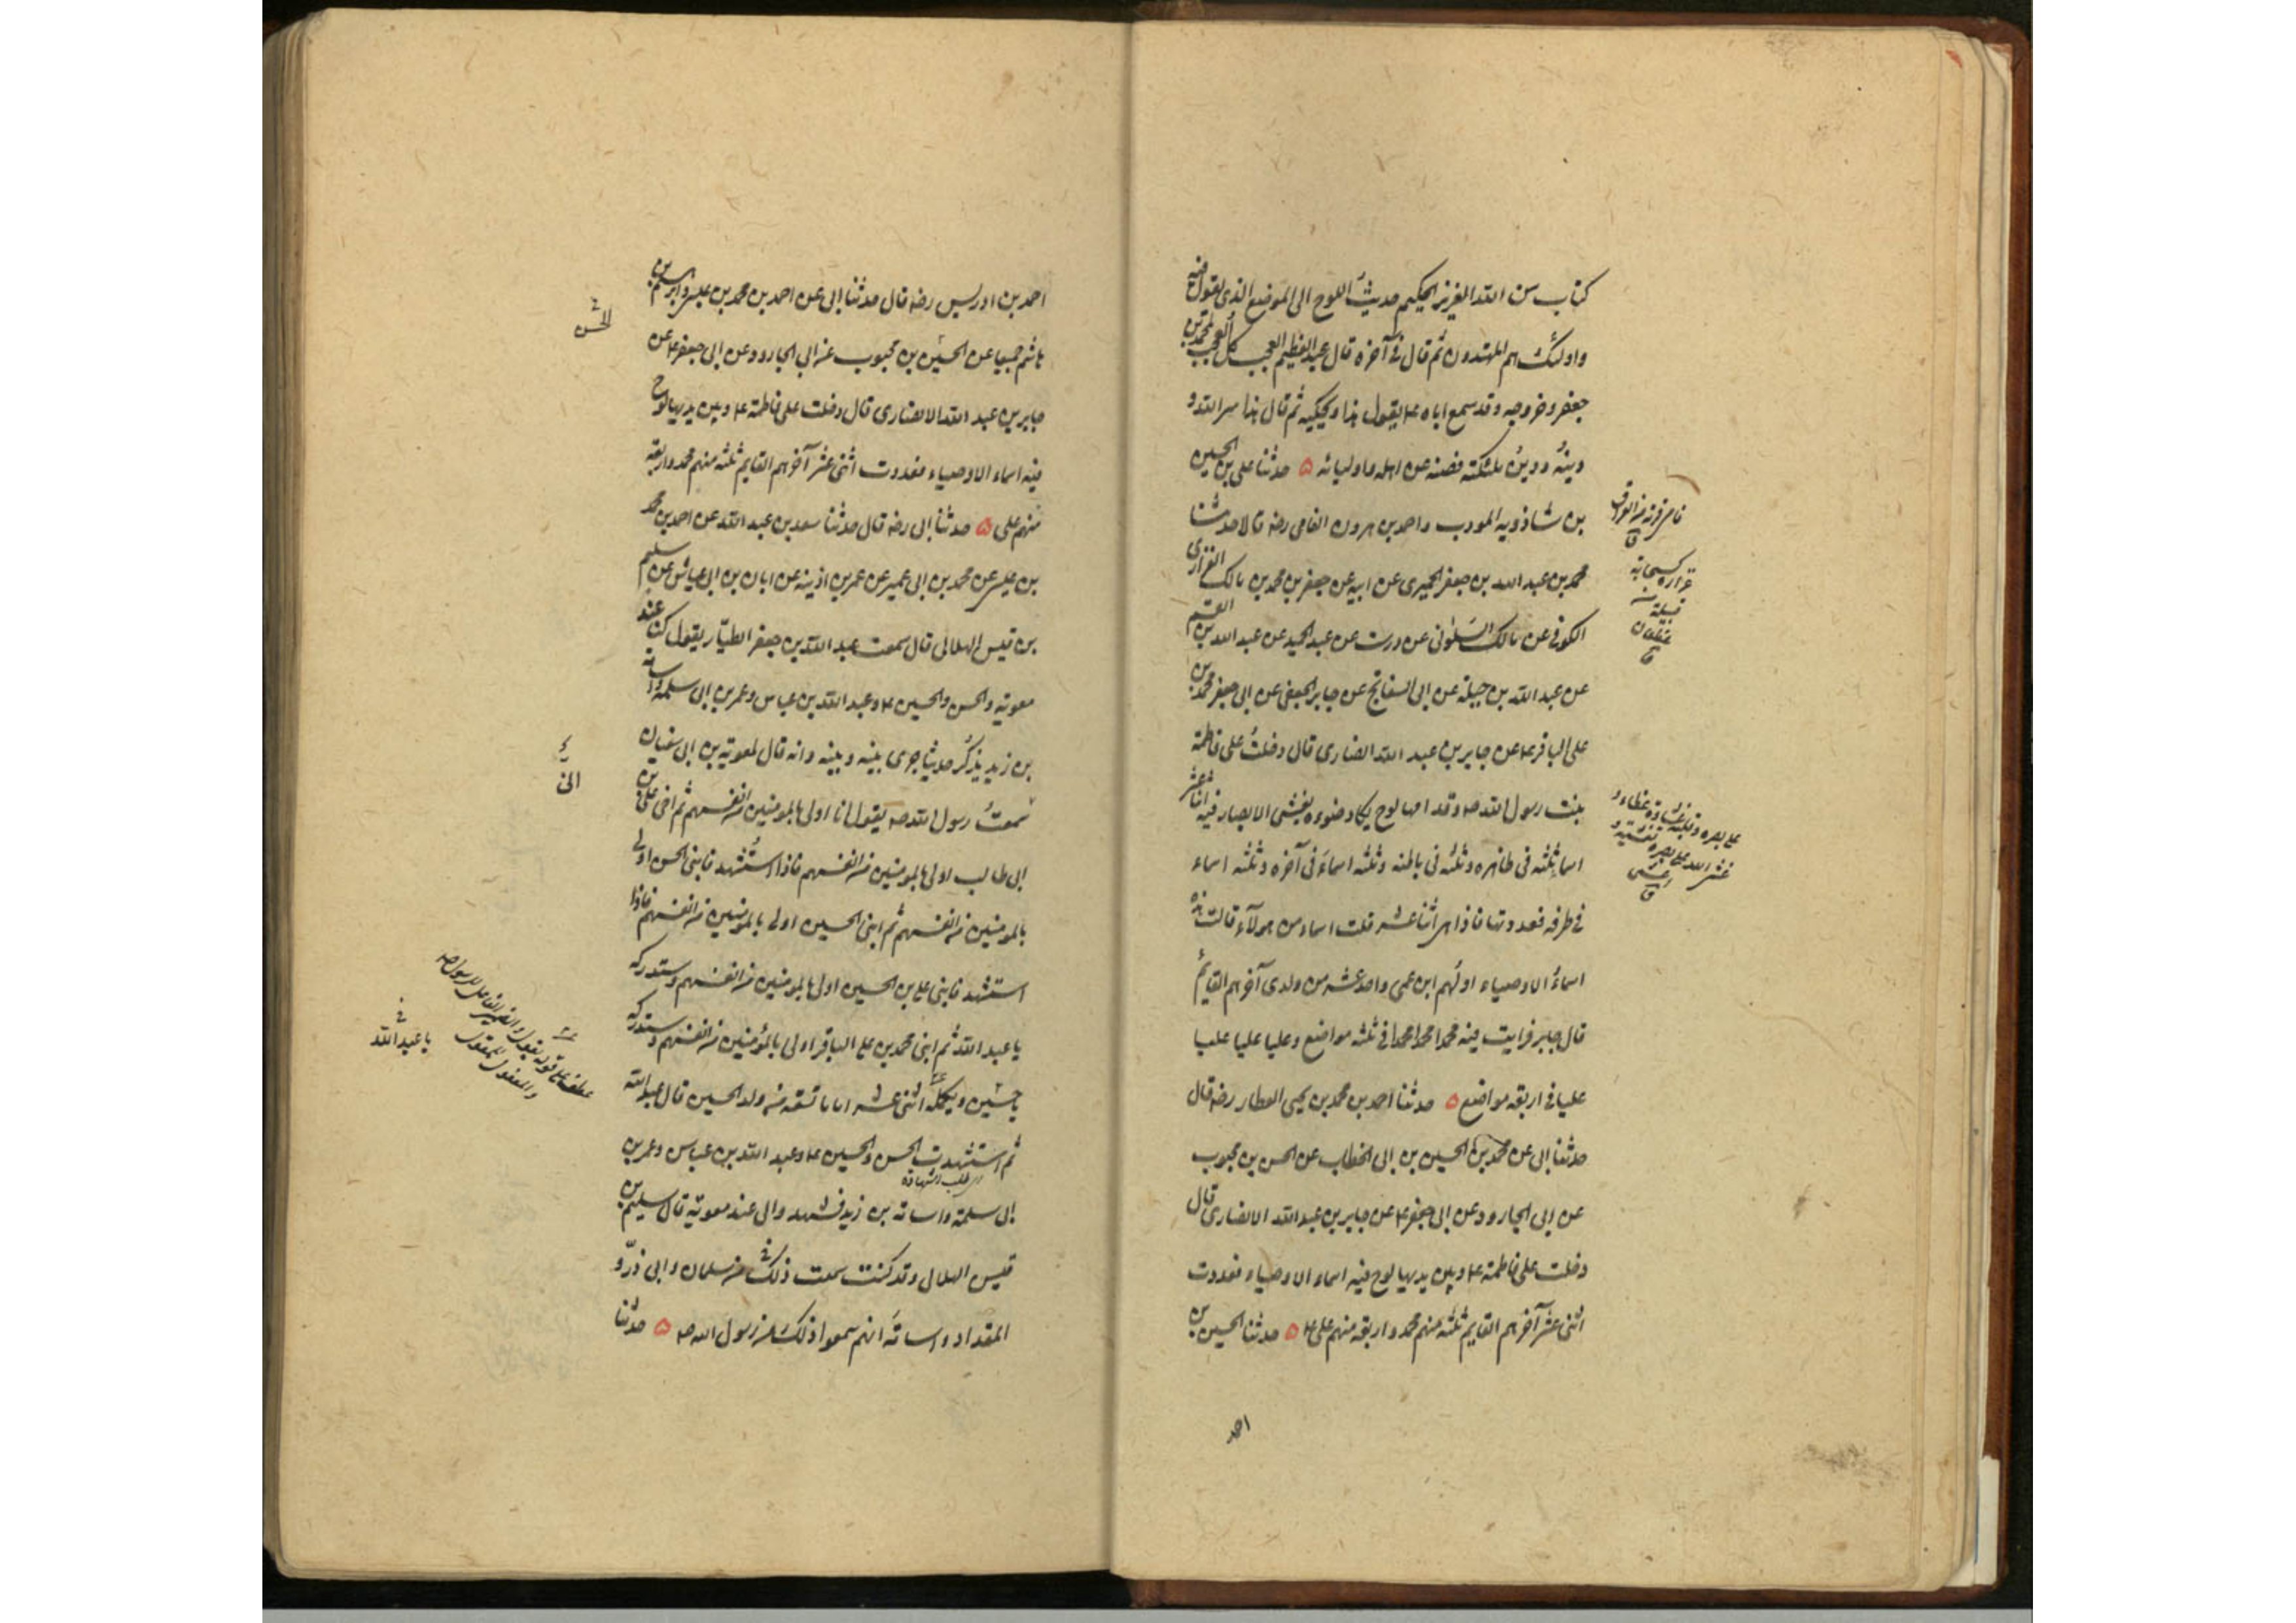 كتاب من الله العزيز الحكيم حديث اللوح الى الموضع الذى يقول فيه
واولئك هم المهتدون ثم قال فى آخره قال عبد العظيم العجب كل العجب لمحمد بن
جعفر وخروجه وقد سمع اباه ع يقول هذا ويحكيه ثم قال هذا سر الله و
دينه ودين ملئكته فصنه عن اهله واوليائه ه حدثنا على بن الحسين
بن شاذويه المودب واحمد بن هرون الفامى رضه قالا حدثنا
محمد بن عبد الله بن جعفر الحميرى عن ابيه عن جعفر بن محمد بن مالك الفزارى
الكوفى عن مالك السلولى عن درست عن عبد الحميد عن عبد الله بن القسم
عن عبد الله بن جبلة عن ابى السفاتج عن جابر الجعفى عن ابى جعفر محمد بن
على الباقر ع عن جابر بن عبد الله الانصارى قال دخلتُ على فاطمة
بنت رسول الله ص وقدامها لوح يكاد ضوءه يغشى الابصار فيه اثنا عشر
اسما ثلثه فى ظاهره وثلثه فى باطنه وثلثه اسماء فى آخره وثلثه اسماء
فى طرفه فعددتها فاذا هى اثنا عشر قلت اسماء من هولآء قالت هذه
اسماءُ الاوصياء اولهم ابن عمى واحد عشر من ولدى آخرهم القايم
قال جابر فرايت فيه محمدا محمدا محمدا فى ثلثه مواضع وعليا عليا عليا
عليا فى اربعه مواضع ه حدثنا احمد بن محمد بن يحيى العطار رضه قال
حدثنا ابى عن محمد بن الحسين بن ابى الخطاب عن الحسن بن محبوب
عن ابى الجارود عن ابى جعفر ع عن جابر بن عبد الله الانصارى قال
دخلت على فاطمة ع وبين يديها لوح فيه اسماء الاوصياء فعددت
اثنى عشر آخرهم القايم ثلثه منهم محمد واربعه منهم على ع ه حدثنا الحسين بن
احمد
قبيلة
غطفان
ق
احمد بن ادريس رضه قال حدثنا ابى عن احمد بن محمد بن عيسى وابراهيم بن
هاشم جميعا عن الحسين بن محبوب عن ابى الجارود عن ابى جعفر ع عن
جابر بن عبد الله الانصارى قال دخلت على فاطمة ع وبين يديها لوح
فيه اسماء الاوصياء فعددت اثنى عشر آخرهم القايم ثلثه منهم محمد واربعه
منهم على ه حدثنا ابى رضه قال حدثنا سعد بن عبد الله عن احمد بن محمد
بن عيسى عن محمد بن ابى عمير عن عمر بن اذينه عن ابان بن ابى عياش عن سليم
بن قيس الهلالى قال سمعت عبد الله بن جعفر الطيّار يقول كنا عند
معويه والحسن والحسين ع وعبد الله بن عباس وعمر بن ابى سلمه واسامه
بن زيد يذكر حديثا جرى بينه وبينه وانه قال لمعوية بن ابى سفيان
سمعتُ رسول الله ص يقول انا اولى بالمومنين من انفسهم ثم اخى على بن
ابى طالب اولى بالمومنين من انفسهم فاذا استُشهد فابنى الحسن اولى
بالمومنين من انفسهم ثم ابنى الحسين اولى بالمومنين من انفسهم فاذا
استشهد فابنى على بن الحسين اولى بالمومنين من انفسهم وستدركه
يا عبد الله ثم ابنى محمد بن على الباقر اولى بالمؤمنين من انفسهم وستدركه
يا حسين ويكمله اثنى عشر اماما تسعه من ولد الحسين قال عبد الله
ثم استشهدت الحسن والحسين ع وعبد الله بن عباس وعمر بن
اى طلب الشهادة
ابى سلمة واسامه بن زيد فشهدوا لى عند معوية قال سليم بن
قيس الهلالى وقد كنت سمعت ذلك من سلمان وابى ذرّ و
المقداد واسامَه انهم سمعوا ذلك من رسول الله ص ه حدثنا
الحسن
عطف على قوله يقول والضمير الفاعل للرسول ص
والمفعول للمقول
يا عبد الله